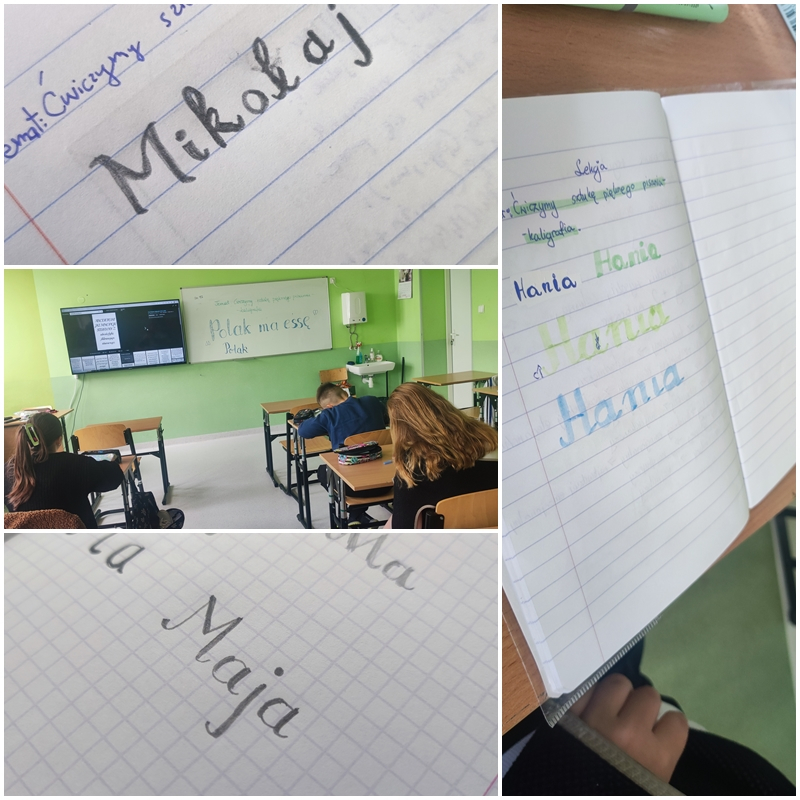 emat: Ćwiczymy
Mikołaj
Temat: Ćwiczymy sztukę pięknego pisania
Polak ma essę
Polak
Ma
Maja
Lekcja
Ćwiczymy sztukę pięknego pisania-
-kaligrafia.
Hania Hania
Hania
Hania